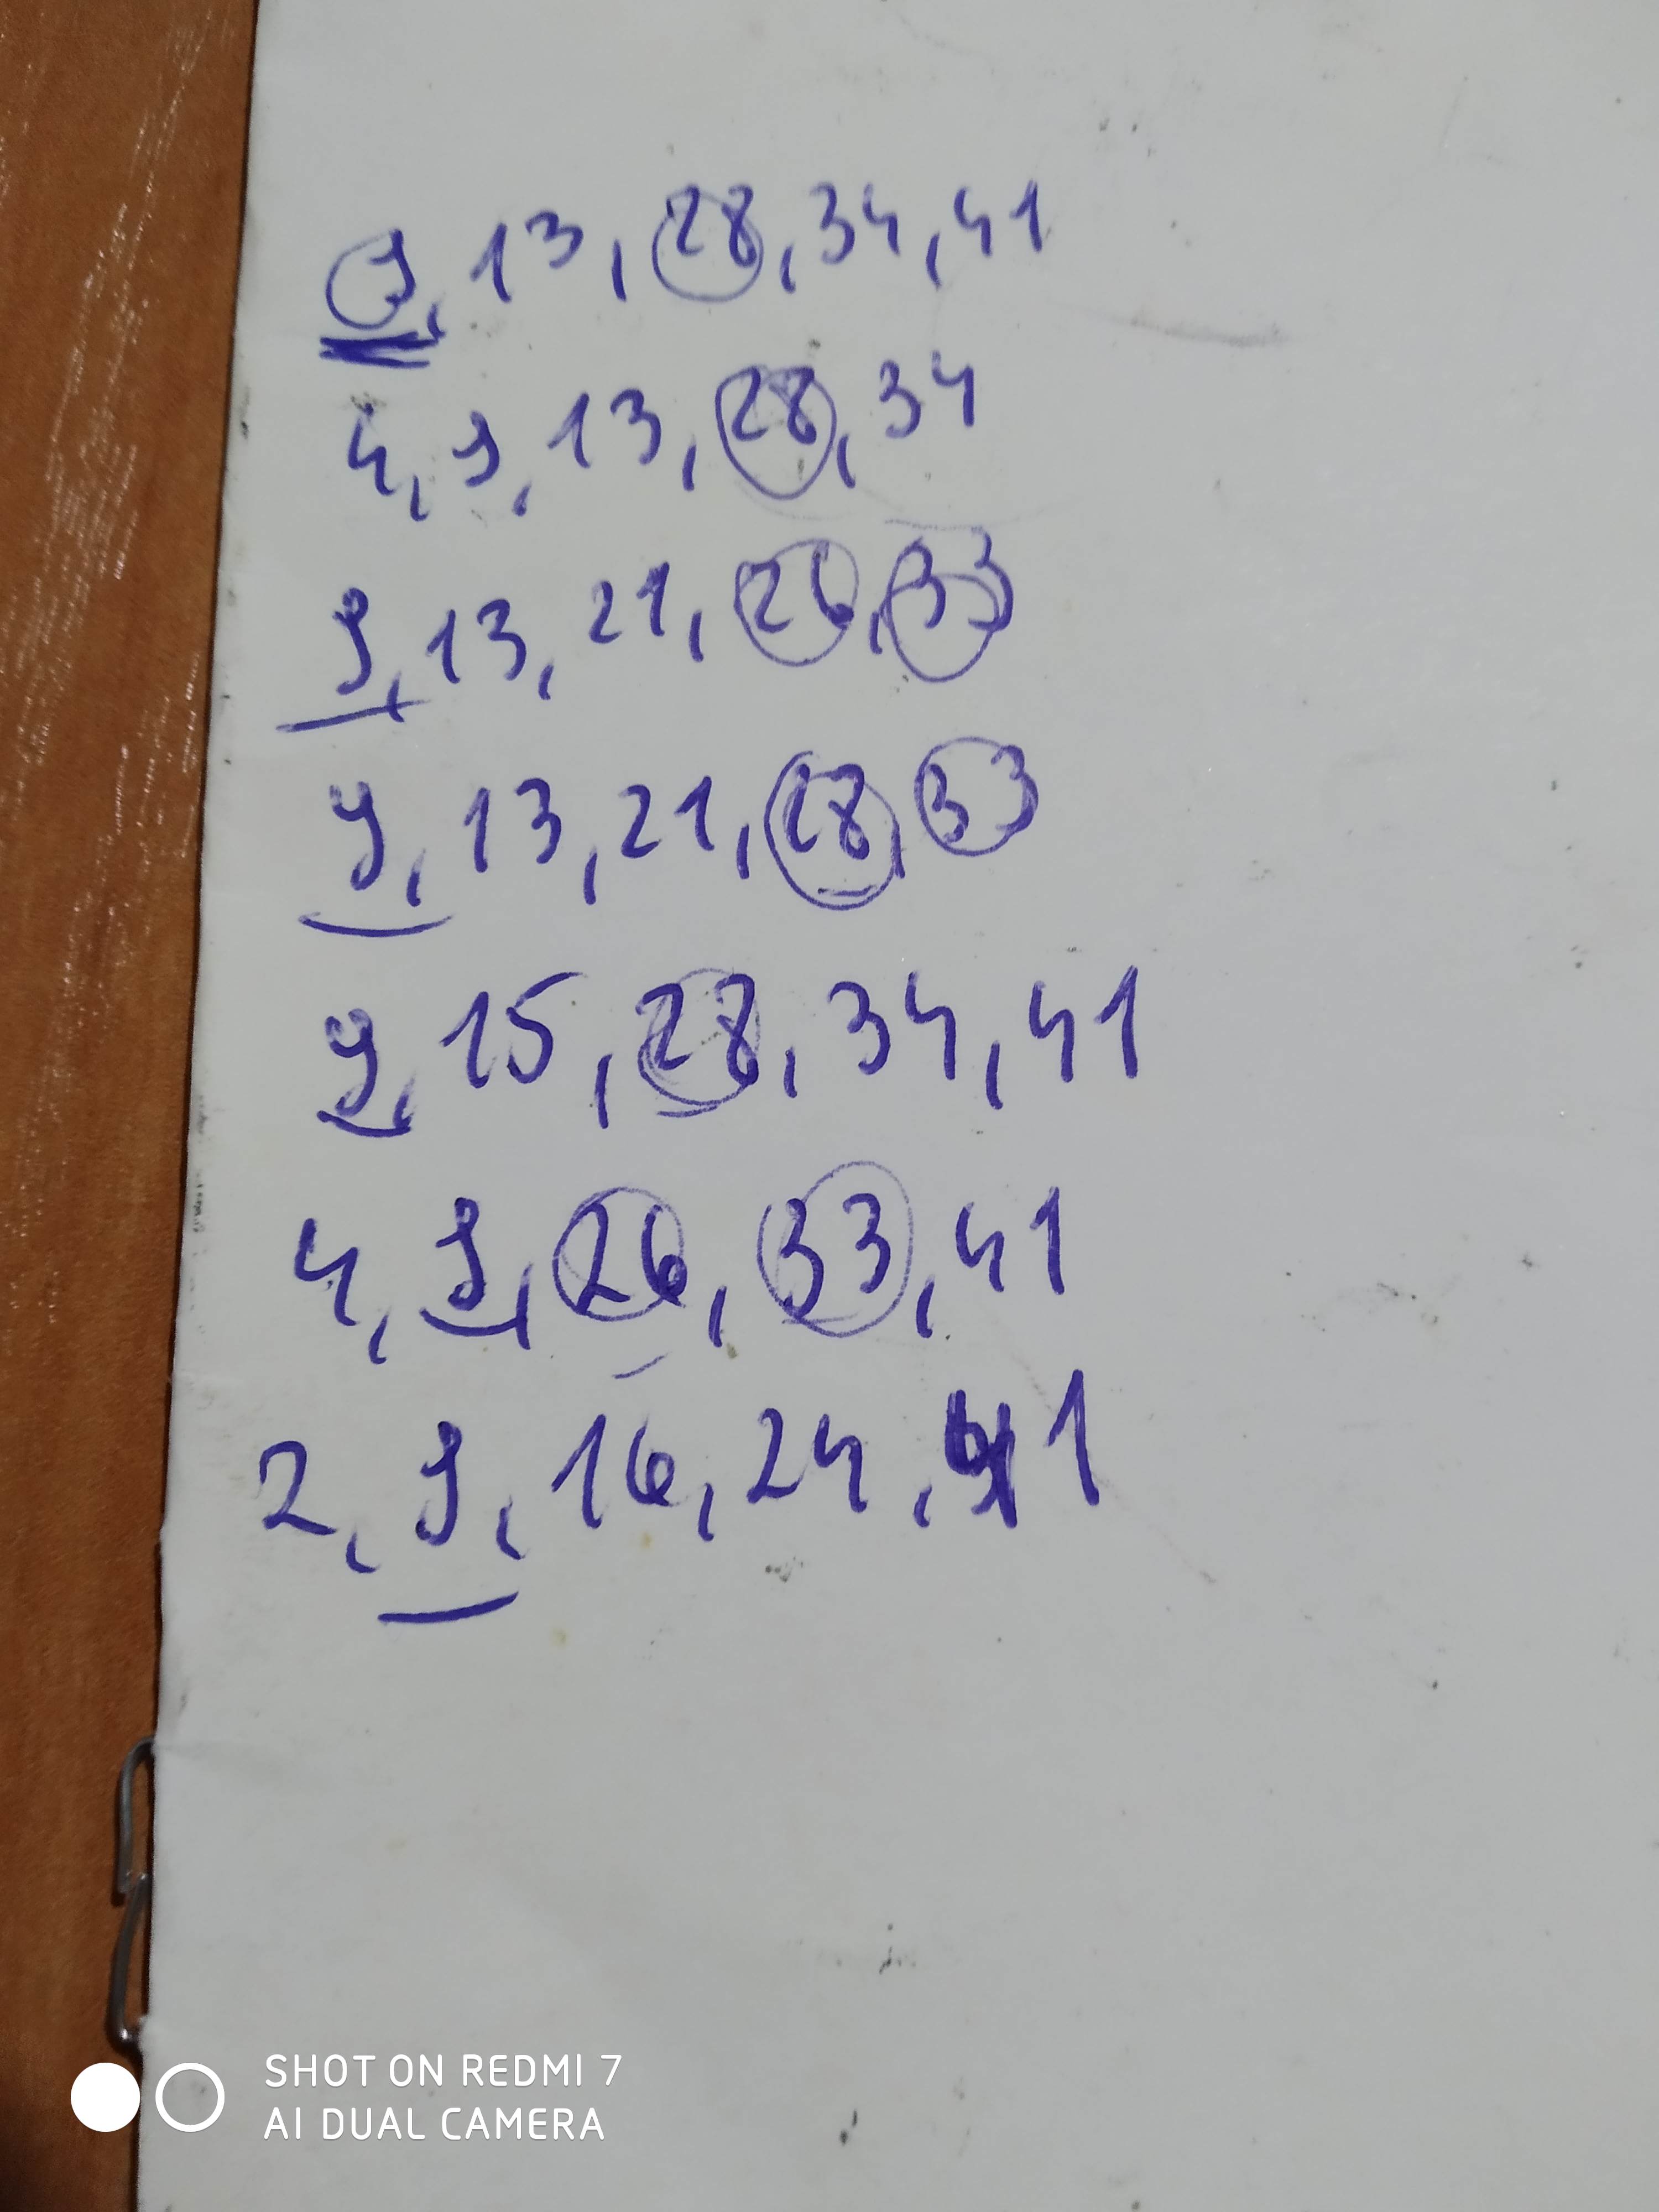 9, 13, 28, 34, 41
4, 9, 13, 28, 34
9, 13, 21, 26, 33
9, 13, 21, 28, 33
9, 15, 28, 34, 41
4, 9, 26, 33, 41
2, 9, 16, 24, 41
SHOT ON REDMI 7
AI DUAL CAMERA